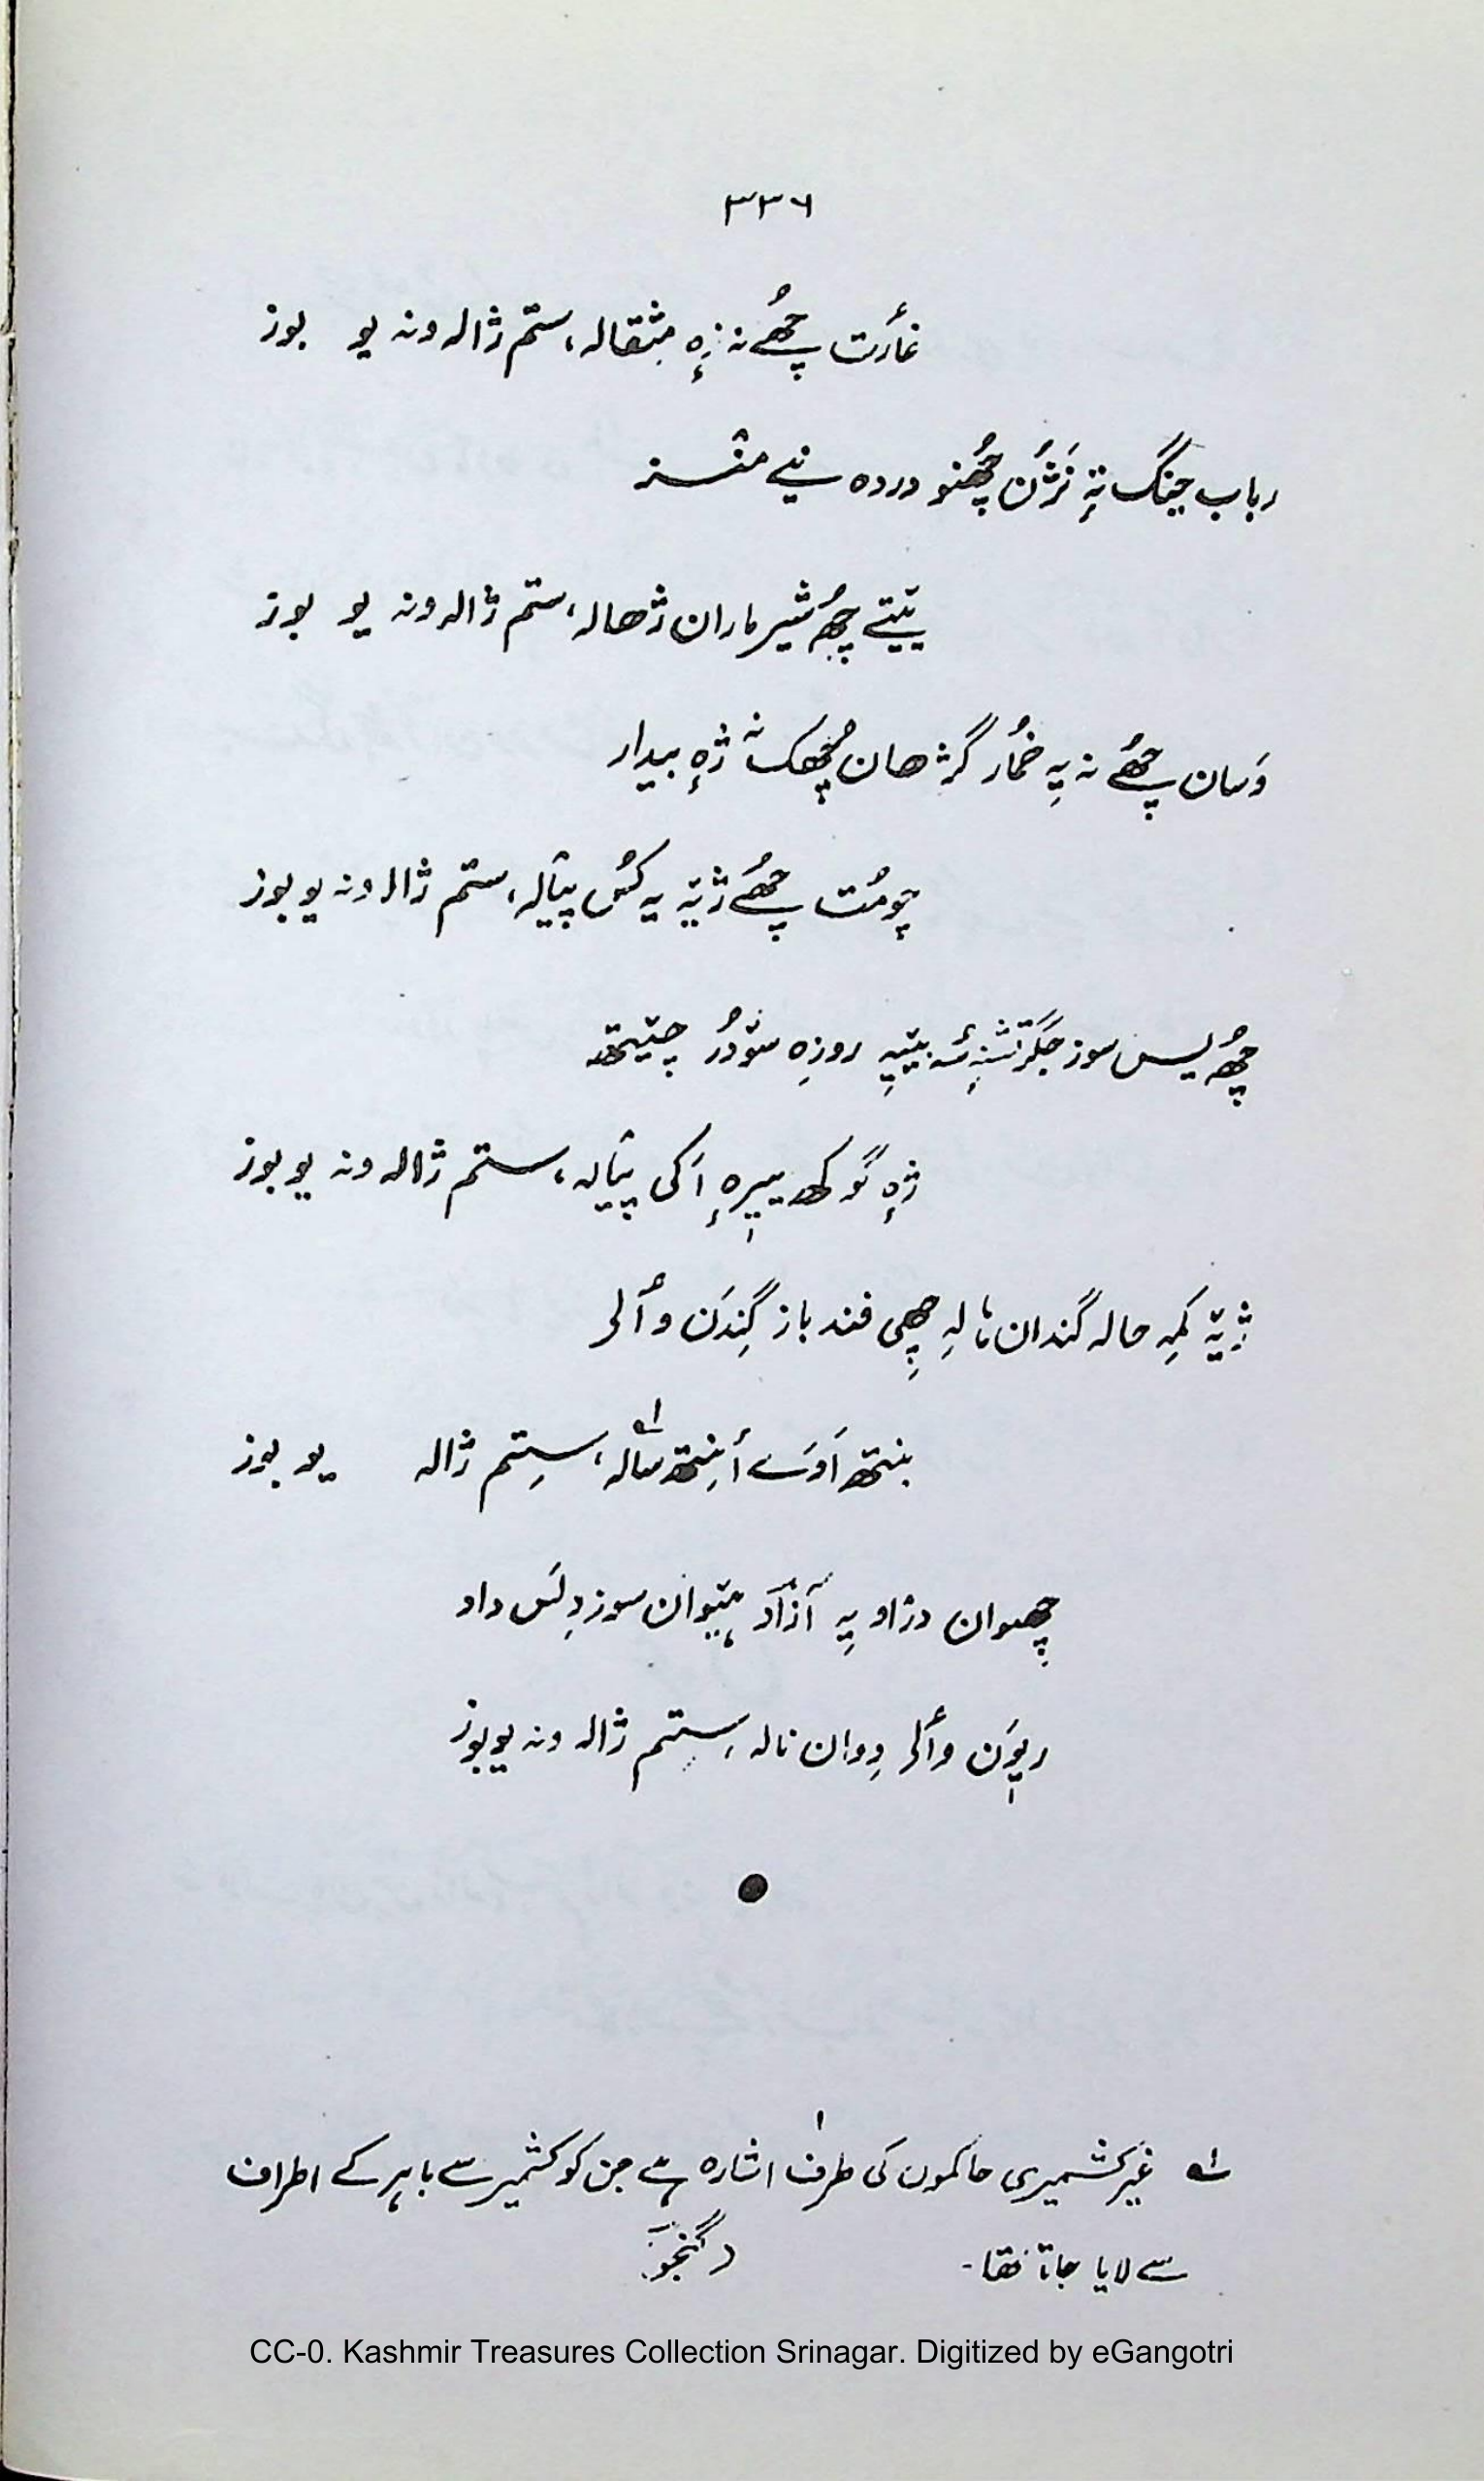 ۳۳۶
غأرت چھُے نہ زہٕ مثقالہ، ستم ژالہ ونہ یو بوز
رباب چنگ تہٕ نَژُن چھُنو دردہ نیے
یٔتیے چھُ شیر ماران ژھالہ، ستم ژالہ ونہ یو بوز
وَسان چھُے نہ یہِ خمُار گژھان چھُکنہ ژہٕ بیدار
چومُت چھُے ژیہ یہ کسُ پیالہ، ستم ژالہ ونہ یو بوز
چھُ یس سوز جگر روزِہ سوٚدُر چیتھ
ژہٕ گوکھ سیرہٕ اَکی پیالہ، ستم ژالہ ونہ یو بوز
ژیہ کمِہ حالہ گندان نالہِ چھِی فند باز گِندَن وأل
بنتھ اَوسَے أنِتھ سالہ، سِتم ژالہ یو بوز
چھِوان دراو یہِ آزاد ہیٚوان سوز دِلَس داد
رِیوَن وأل دِوان نالہ، سِتم ژالہ ونہ یو بوز
لہ غیر کشمیری حاکموں کی طرف اشارہ ہے جن کو کشمیر سے باہر کے اطراف
سے لایا جاتا تھا۔ (گنجو)
CC-0. Kashmir Treasures Collection Srinagar. Digitized by eGangotri